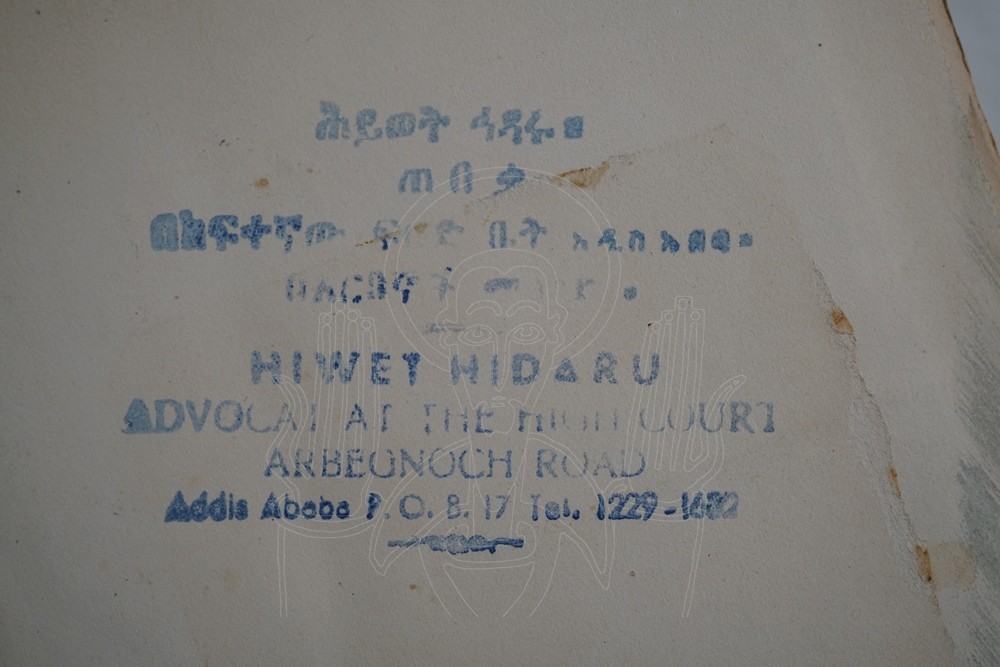 ሕይወት ኅዳሩ።
ጠበቃ
በከፍተኛው ፍርድ ቤት አዲስ አበባ።
በአርበኞች
HIWET HIDARU
ADVOCAT AT THE HIGH COURT
ARBEGNOCH ROAD
Addis Ababa P. O. B. 17 Tel. 1229-1682